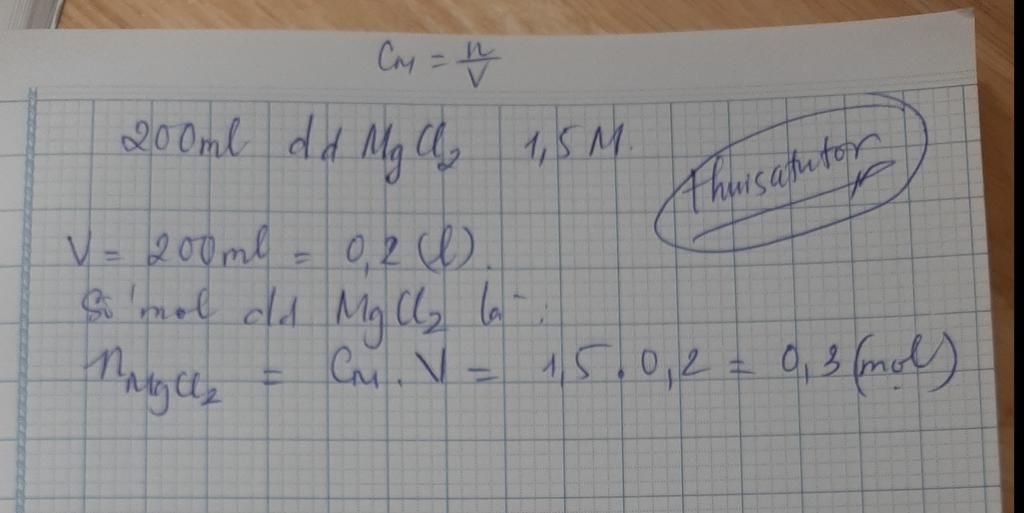 C_M = n/V
200ml dd MgCl₂ 1,5 M.
thuisatutor
V = 200ml = 0,2 (l).
Số mol dd MgCl₂ là :
n_MgCl₂ = C_M . V = 1,5 . 0,2 = 0,3 (mol)